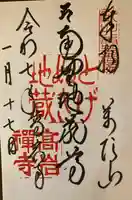 奉拝 萬頂山
地蔵尊
令和七年
一月十七日
とげぬき
地蔵
高岩
禪寺